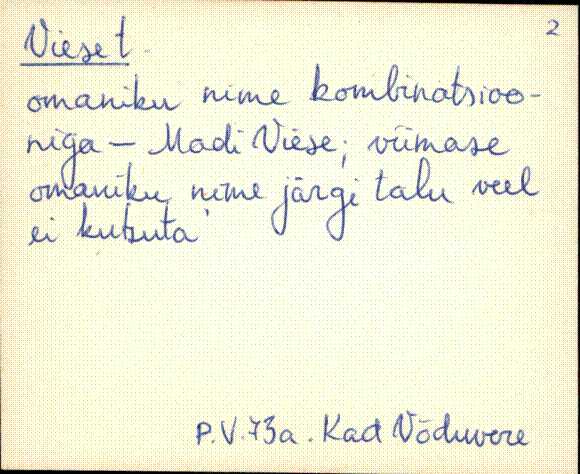 2
Viese t.
omaniku nime kombinatsioo-
niga – Madi Viese; viimase
omaniku nime järgi talu veel
ei kutsuta'
P.V.73a. Kad Võduvere